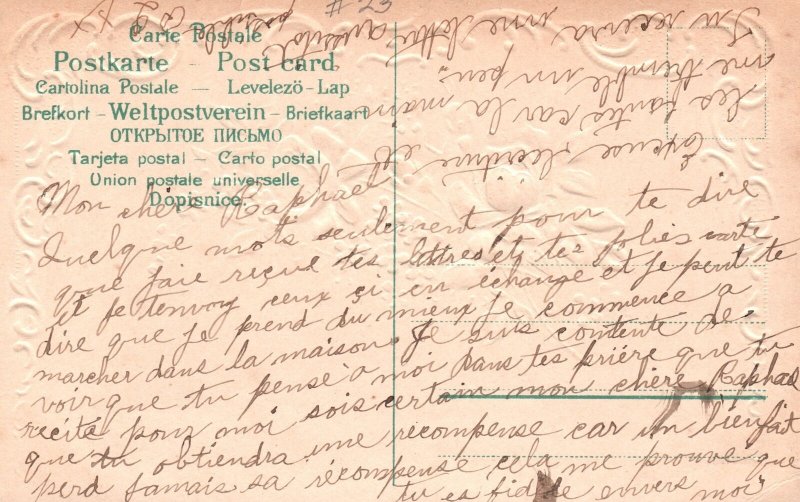 # 23
Carte Postale
Postkarte - Post card
Cartolina Postale - Levelezö-Lap
Brefkort - Weltpostverein - Briefkaart
ОТКРЫТОЕ ПИСЬМО
Tarjeta postal - Carto postal
Union postale universelle
Dopisnice.
Mon chère Raphael
Quelque mots seulement pour te dire
que jaie reçue tes lettres et tes jolies carte
et je tenvoy ceux çi en échange et je peut te
dire que je prend du mieux je commence a
marcher dans la maison. Je suis contente de
voir que tu pense a moi dans tes prière que tu
récite pour moi sois certain mon chère Raphael
que tu obtiendra une récompense car un bienfait
perd jamais sa récompense cela me prouve que
tu es fidèle envers moi
Excuse lécriture et
les fautes car la main
me tremble un peu.
Tu recevra une lettre aussitot
possible
X X